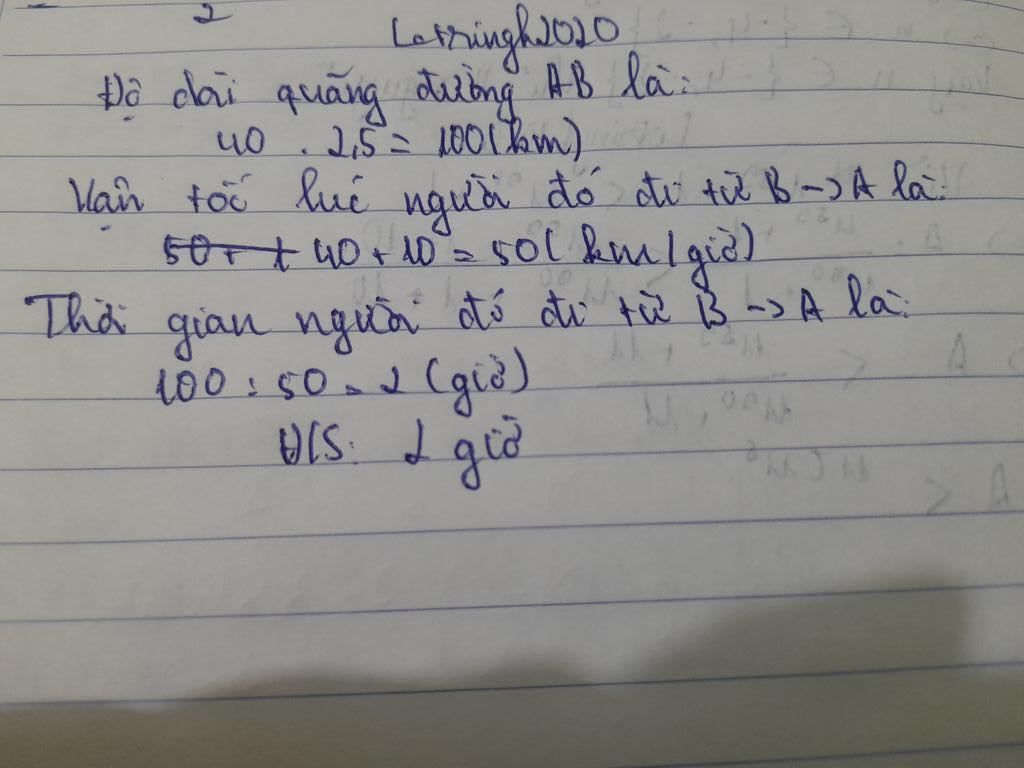 2
Letringh2020
Độ dài quãng đường AB là:
40 . 2,5 = 100 (km)
Vận tốc lúc người đó đi từ B -> A là:
40 + 10 = 50 ( km / giờ)
Thời gian người đó đi từ B -> A là:
100 : 50 = 2 (giờ)
Đ/S: 2 giờ